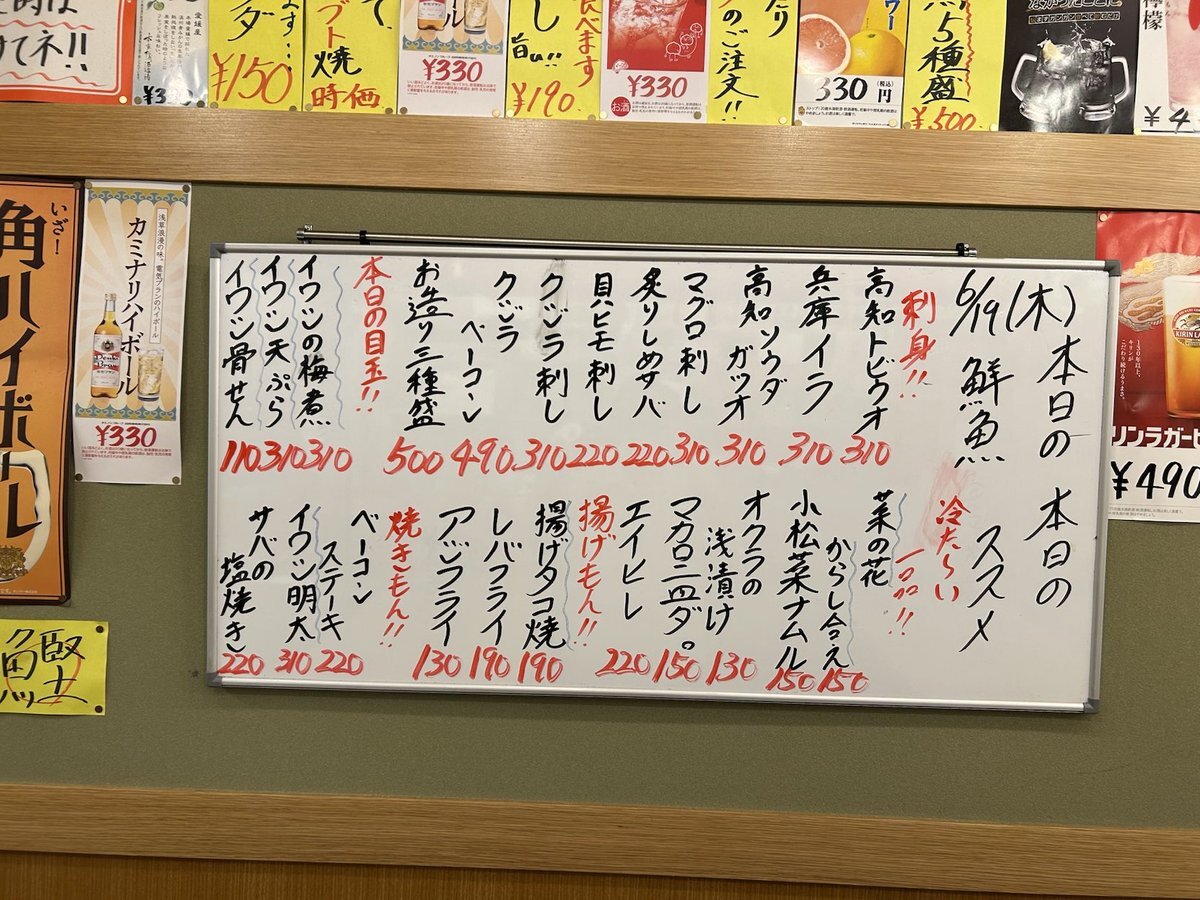 ます・・
¥150
て、
ブト焼
時価
ール
¥330
し
旨い!!
食べます
¥190
¥330
お酒
たり
のご注文!!
ワー
330円(税込)
5種盛
¥500
檸檬
¥4
てネ!!
愛媛産
いざ!
角ハイボール
浅草浪漫の味、電気ブランのハイボール
カミナリハイボール
¥330
6/19(木) 本日の 本日の
鮮魚 ススメ
刺身!!
高知トビウオ 310
兵庫イラ 310
高知ソウダガツオ 310
マグロ刺し 310
炙りしめサバ 220
貝ヒモ刺し 220
クジラ刺し 310
クジラベーコン 490
お造り三種盛 500
本日の目玉!!
イワシの梅煮 310
イワシ天ぷら 310
イワシ骨せん 110
冷たい
一品!!
菜の花
からし合え 150
小松菜ナムル 150
オクラの
浅漬け 130
マカロニサラダ。 150
エイヒレ 220
揚げもん!!
揚げタコ焼 190
レバフライ 190
アジフライ 130
焼きもん!!
ベーコン
ステーキ 220
イワシ明太 310
サバの
塩焼き 220
KIRIN LAGER
キリンラガービ
¥490
鰹